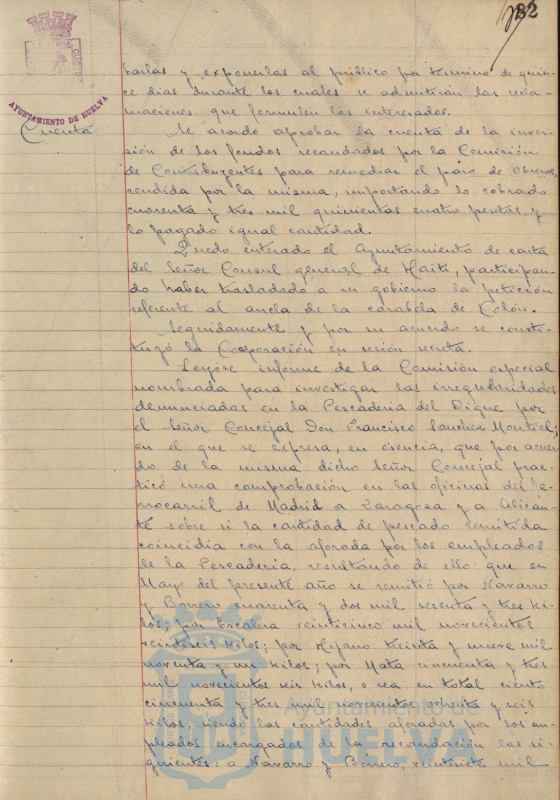 82
barlas y exponerlas al público por termino de quin-
ce dias durante los cuales se admitirán las recla-
maciones que formulen los interesados.
AYUNTAMIENTO DE HUELVA
Cuenta
Se acordó aprobar la cuenta de la inver-
sión de los fondos recaudados por la Comisión
de Contribuyentes para remediar el paro de obreros,
rendida por la misma, importando lo cobrado
cuarenta y tres mil quinientas cuatro pesetas, y
lo pagado igual cantidad.
Quedó enterado el Ayuntamiento de carta
del Señor Consul general de Haiti, participan-
do haber trasladado a su gobierno la petición
referente al ancla de la carabela de Colón.
Seguidamente y por su acuerdo se consti-
tuyó la Corporación en sesión secreta.
Leyóse informe de la Comisión especial
nombrada para investigar las irregularidades
denunciadas en la Pescaderia del Dique por
el Señor Concejal Don Francisco Sanchez Montiel;
en el que se expresa, en esencia, que por acuer-
do de la misma dicho Señor Concejal prac-
ticó una comprobación en las oficinas del fe-
rrocarril de Madrid a Zaragoza y a Alican-
te sobre si la cantidad de pescado remitida
coincidia con la aforada por los empleados
de la Pescaderia, resultando de ello: que en
Mayo del presente año se remitió por Navarro
y Borrero cuarenta y dos mil sesenta y tres ki-
los; por Escalera veinticinco mil novecientos
veintiseis kilos; por treinta y nueve mil
noventa y un kilos; por Mata cincuenta y tres
mil novecientos seis kilos, o sea en total ciento
cincuenta y tres mil novecientos ochenta y seis
kilos siendo las cantidades aforadas por los em-
pleados encargados de la recaudación las si-
guientes: a Navarro y Borrero, veintisiete mil
Ayuntamiento de
HUELVA